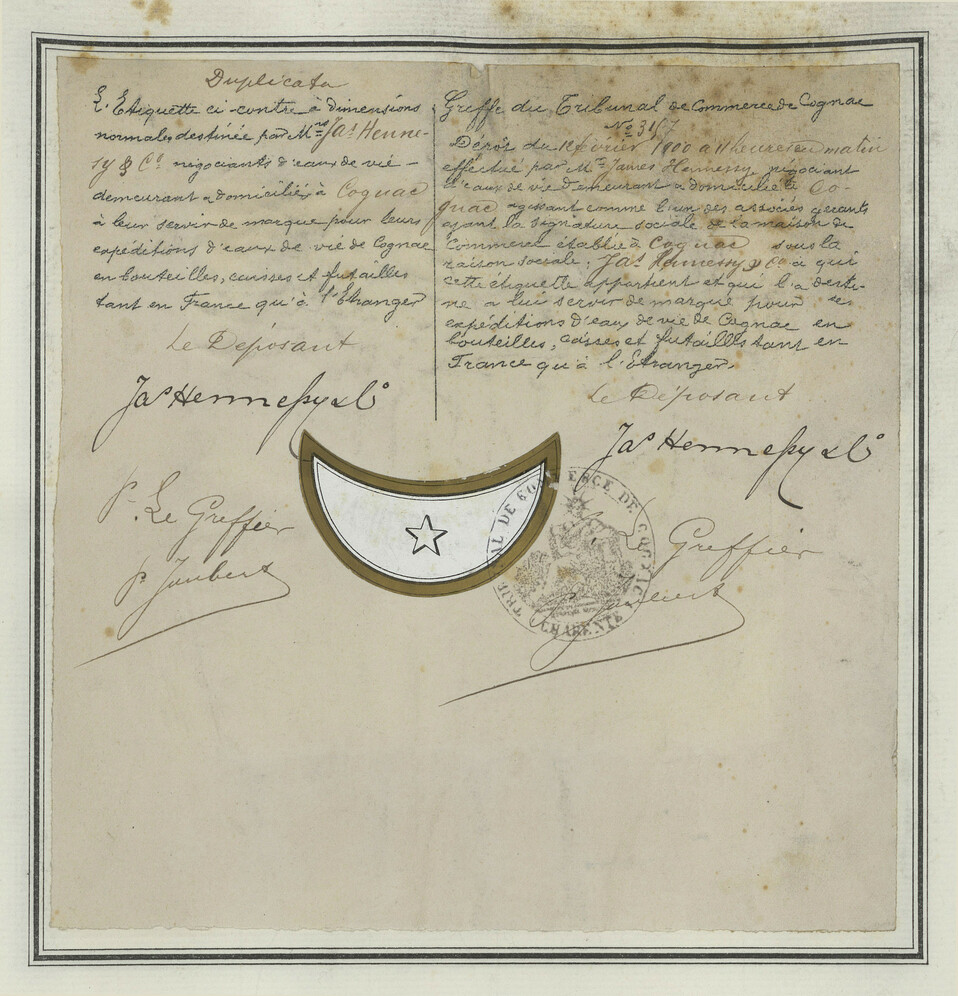 Duplicata
L'Etiquette ci-contre à dimensions
normales destinée par Mrs Jas Henne-
sy & Co négociants d'eaux de vie -
demeurant & domiciliés à Cognac
à leur servir de marque pour leurs
expéditions d'eaux de vie de Cognac
en bouteilles, caisses et futailles
tant en France qu'à l'Etranger
Le Déposant
Jas Hennessy & Co
P. Le Greffier
P Jaubert
Greffe du Tribunal de Commerce de Cognac
No 3157
Dépôt du février 1900 à 11 heures du matin
effectué par Mr James Hennessy, négociant
d'eaux de vie demeurant & domicilié à Co-
gnac agissant comme l'un des associés gérants
ayant la signature sociale de la maison de
Commerce établie à Cognac sous la
raison sociale. Jas Hennessy & Co à qui
cette étiquette appartient et qui l'a desti-
né à lui servir de marque pour ses
expéditions d'eaux de vie de Cognac en
bouteilles, caisses et futailles tant en
France qu'à l'Etranger.
Le Déposant
Jas Hennessy & Co
Greffier
Jaubert
TRIBUNAL DE COMMERCE DE COGNAC
CHARENTE